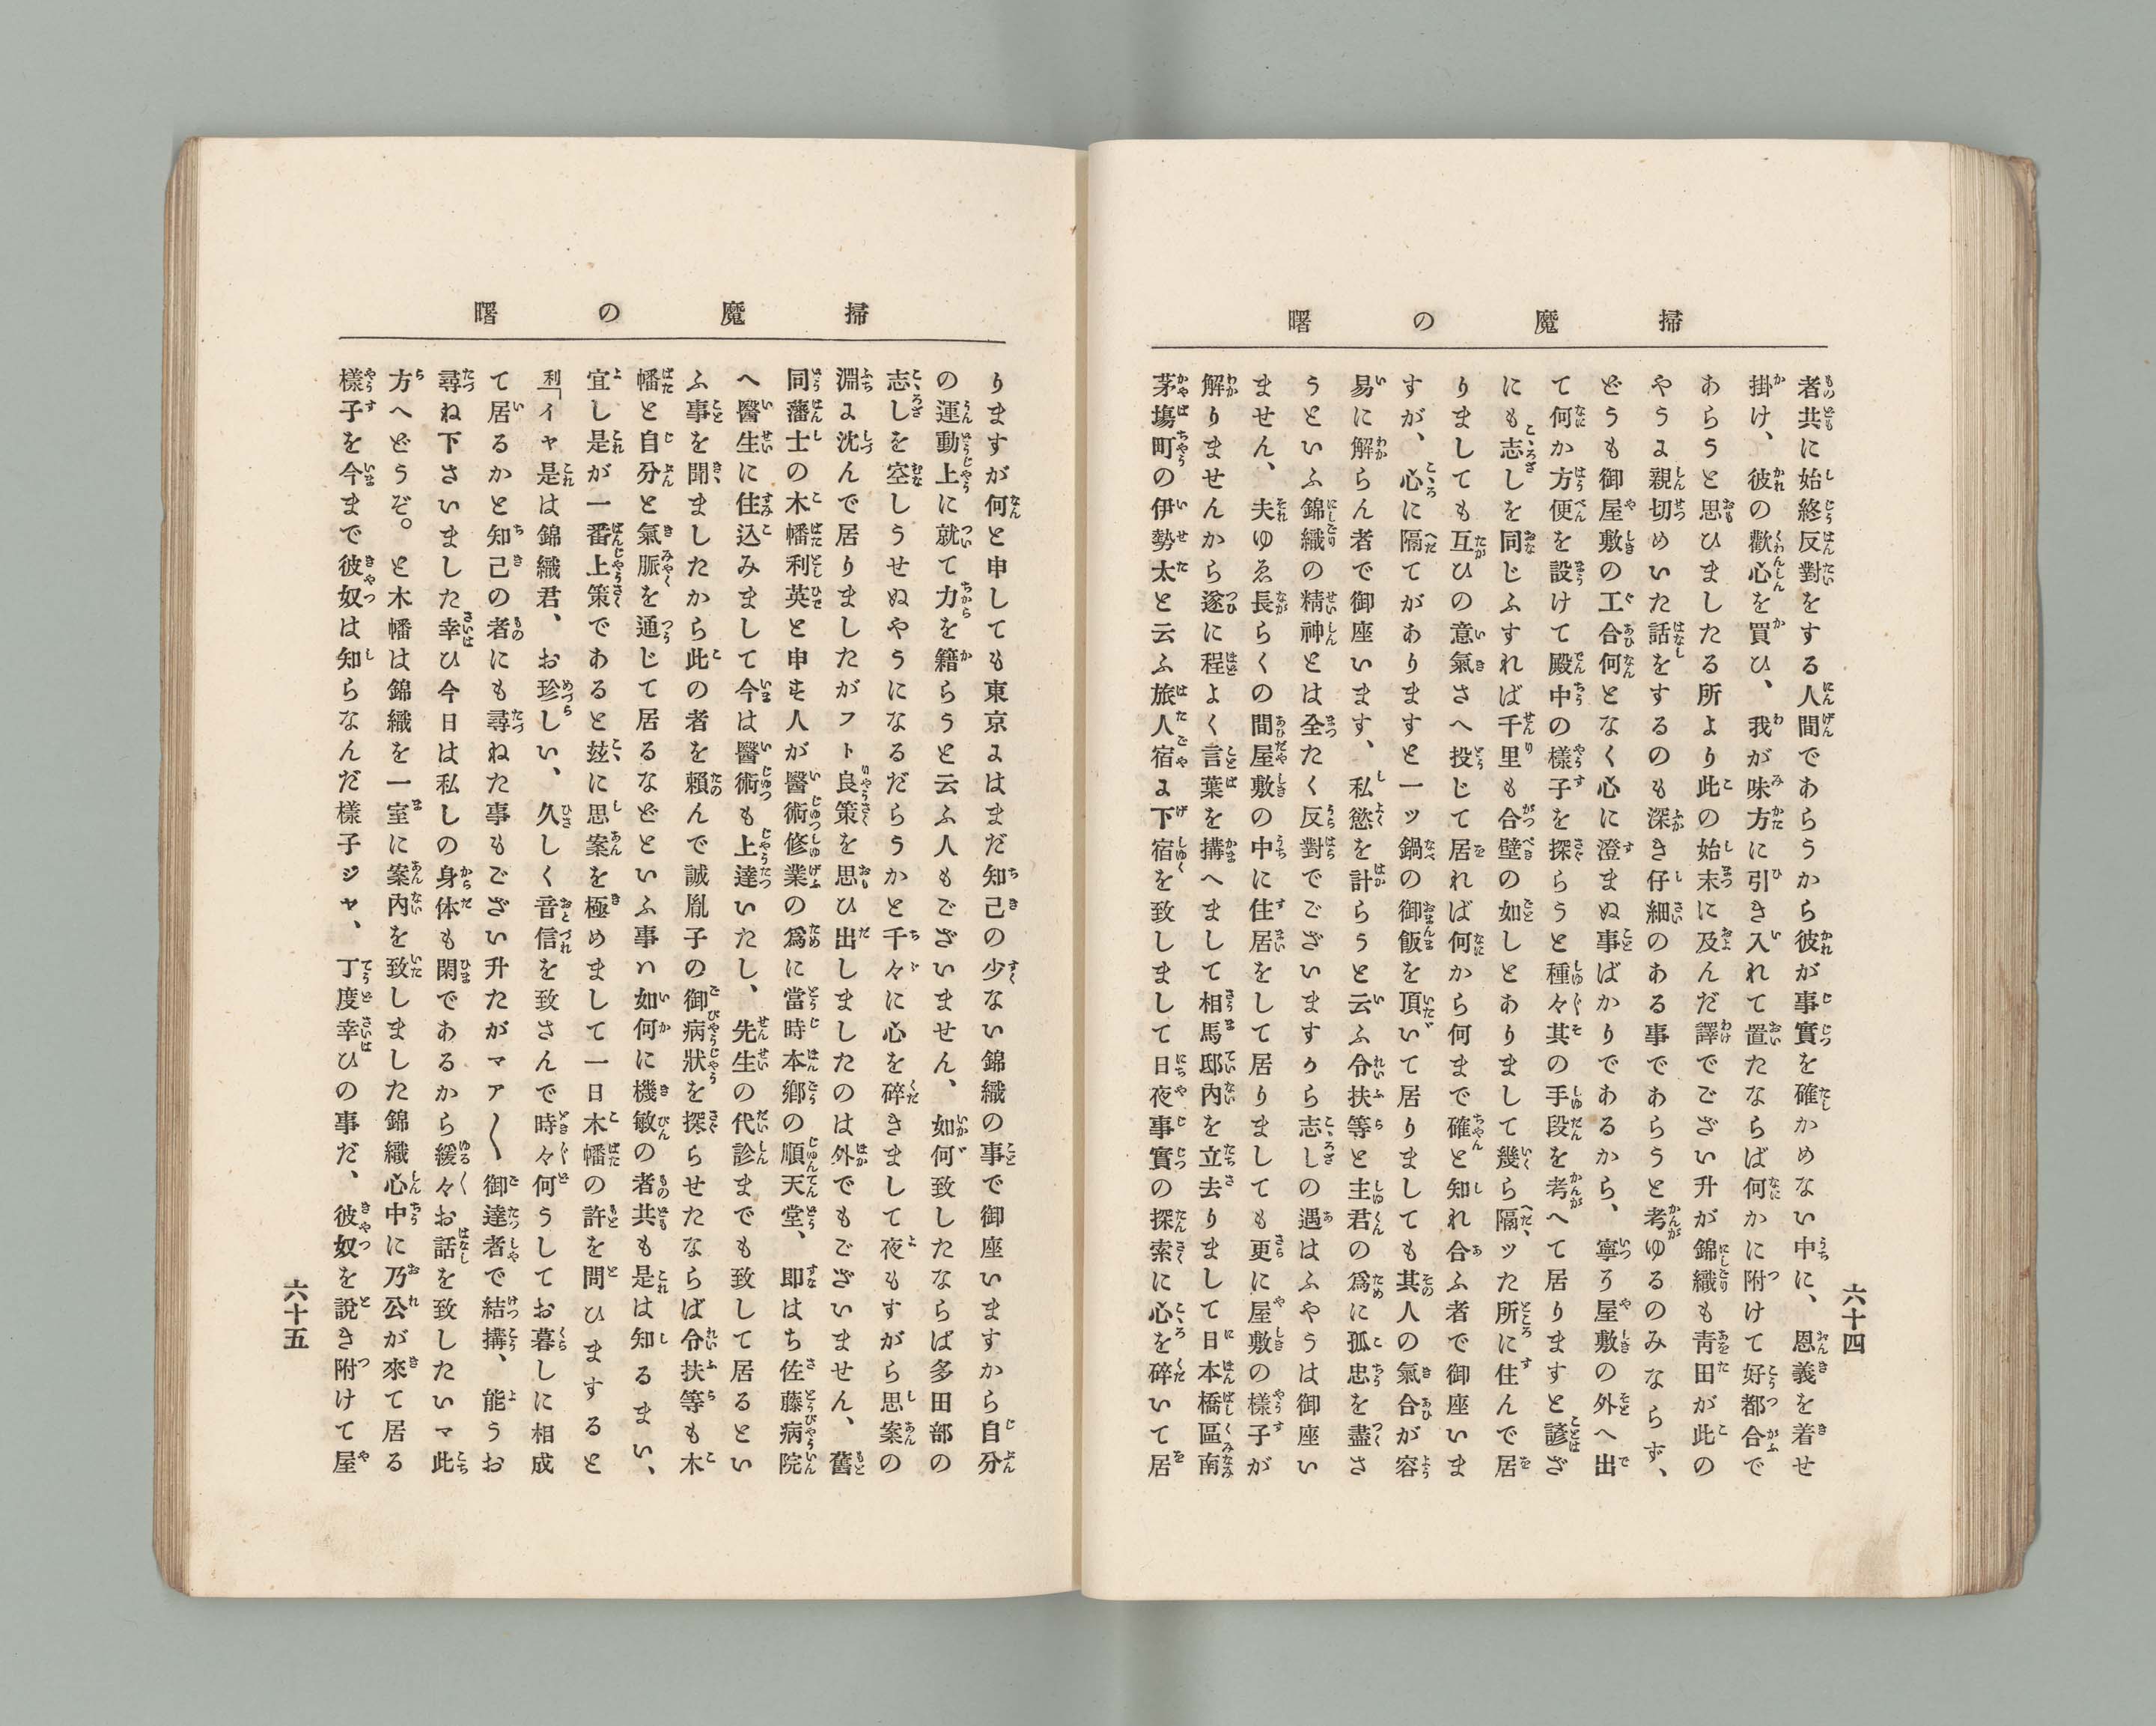 掃魔の曙
者共に始終反對をする人間であらうから彼が事實を確かめない中に、恩義を着せ
掛け、彼の歡心を買ひ、我が味方に引き入れて置たならば何かに附けて好都合で
あらうと思ひましたる所より此の始末に及んだ譯でござい升が錦織も靑田が此の
やうよ親切めいた話をするのも深き仔細のある事であらうと考ゆるのみならず、
どうも御屋敷の工合何となく心に澄まぬ事ばかりであるから、寧ろ屋敷の外へ出
て何か方便を設けて殿中の樣子を探らうと種々其の手段を考へて居りますと諺ざ
にも志しを同じふすれば千里も合壁の如しとありまして幾ら隔ッた所に住んで居
りましても互ひの意氣さへ投じて居れば何から何まで確と知れ合ふ者で御座いま
すが、心に隔てがありますと一ッ鍋の御飯を頂いて居りましても其人の氣合が容
易に解らん者で御座います、私慾を計らうと云ふ令扶等と主君の爲に孤忠を盡さ
うといふ錦織の精神とは全たく反對でございますから志しの遇はふやうは御座い
ません、夫ゆゑ長らくの間屋敷の中に住居をして居りましても更に屋敷の樣子が
解りませんから遂に程よく言葉を搆へまして相馬邸內を立去りまして日本橋區南
茅塲町の伊勢太と云ふ旅人宿よ下宿を致しまして日夜事實の探索に心を碎いて居
六十四
掃魔の曙
りますが何と申しても東京よはまだ知己の少ない錦織の事で御座いますから自分
の運動上に就て力を籍らうと云ふ人もございません、如何致したならば多田部の
志しを空しうせぬやうになるだらうかと千々に心を碎きまして夜もすがら思案の
淵よ沈んで居りましたがフト良策を思ひ出しましたのは外でもございません、舊
同藩士の木幡利英と申す人が醫術修業の爲に當時本鄕の順天堂、即はち佐藤病院
へ醫生に住込みまして今は醫術も上達いたし、先生の代診までも致して居るとい
ふ事を聞ましたから此の者を賴んで誠胤子の御病狀を探らせたならば令扶等も木
幡と自分と氣脈を通じて居るなどといふ事ハ如何に機敏の者共も是は知るまい、
宜し是が一番上策であると玆に思案を極めまして一日木幡の許を問ひますると
利「イヤ是は錦織君、お珍しい、久しく音信を致さんで時々何うしてお暮しに相成
て居るかと知己の者にも尋ねた事もござい升たがマア〱御達者で結搆、能うお
尋ね下さいました幸ひ今日は私しの身体も閑であるから緩々お話を致したいマ此
方へどうぞ。と木幡は錦織を一室に案內を致しました錦織心中に乃公が來て居る
樣子を今まで彼奴は知らなんだ樣子ジャ、丁度幸ひの事だ、彼奴を說き附けて屋
六十五